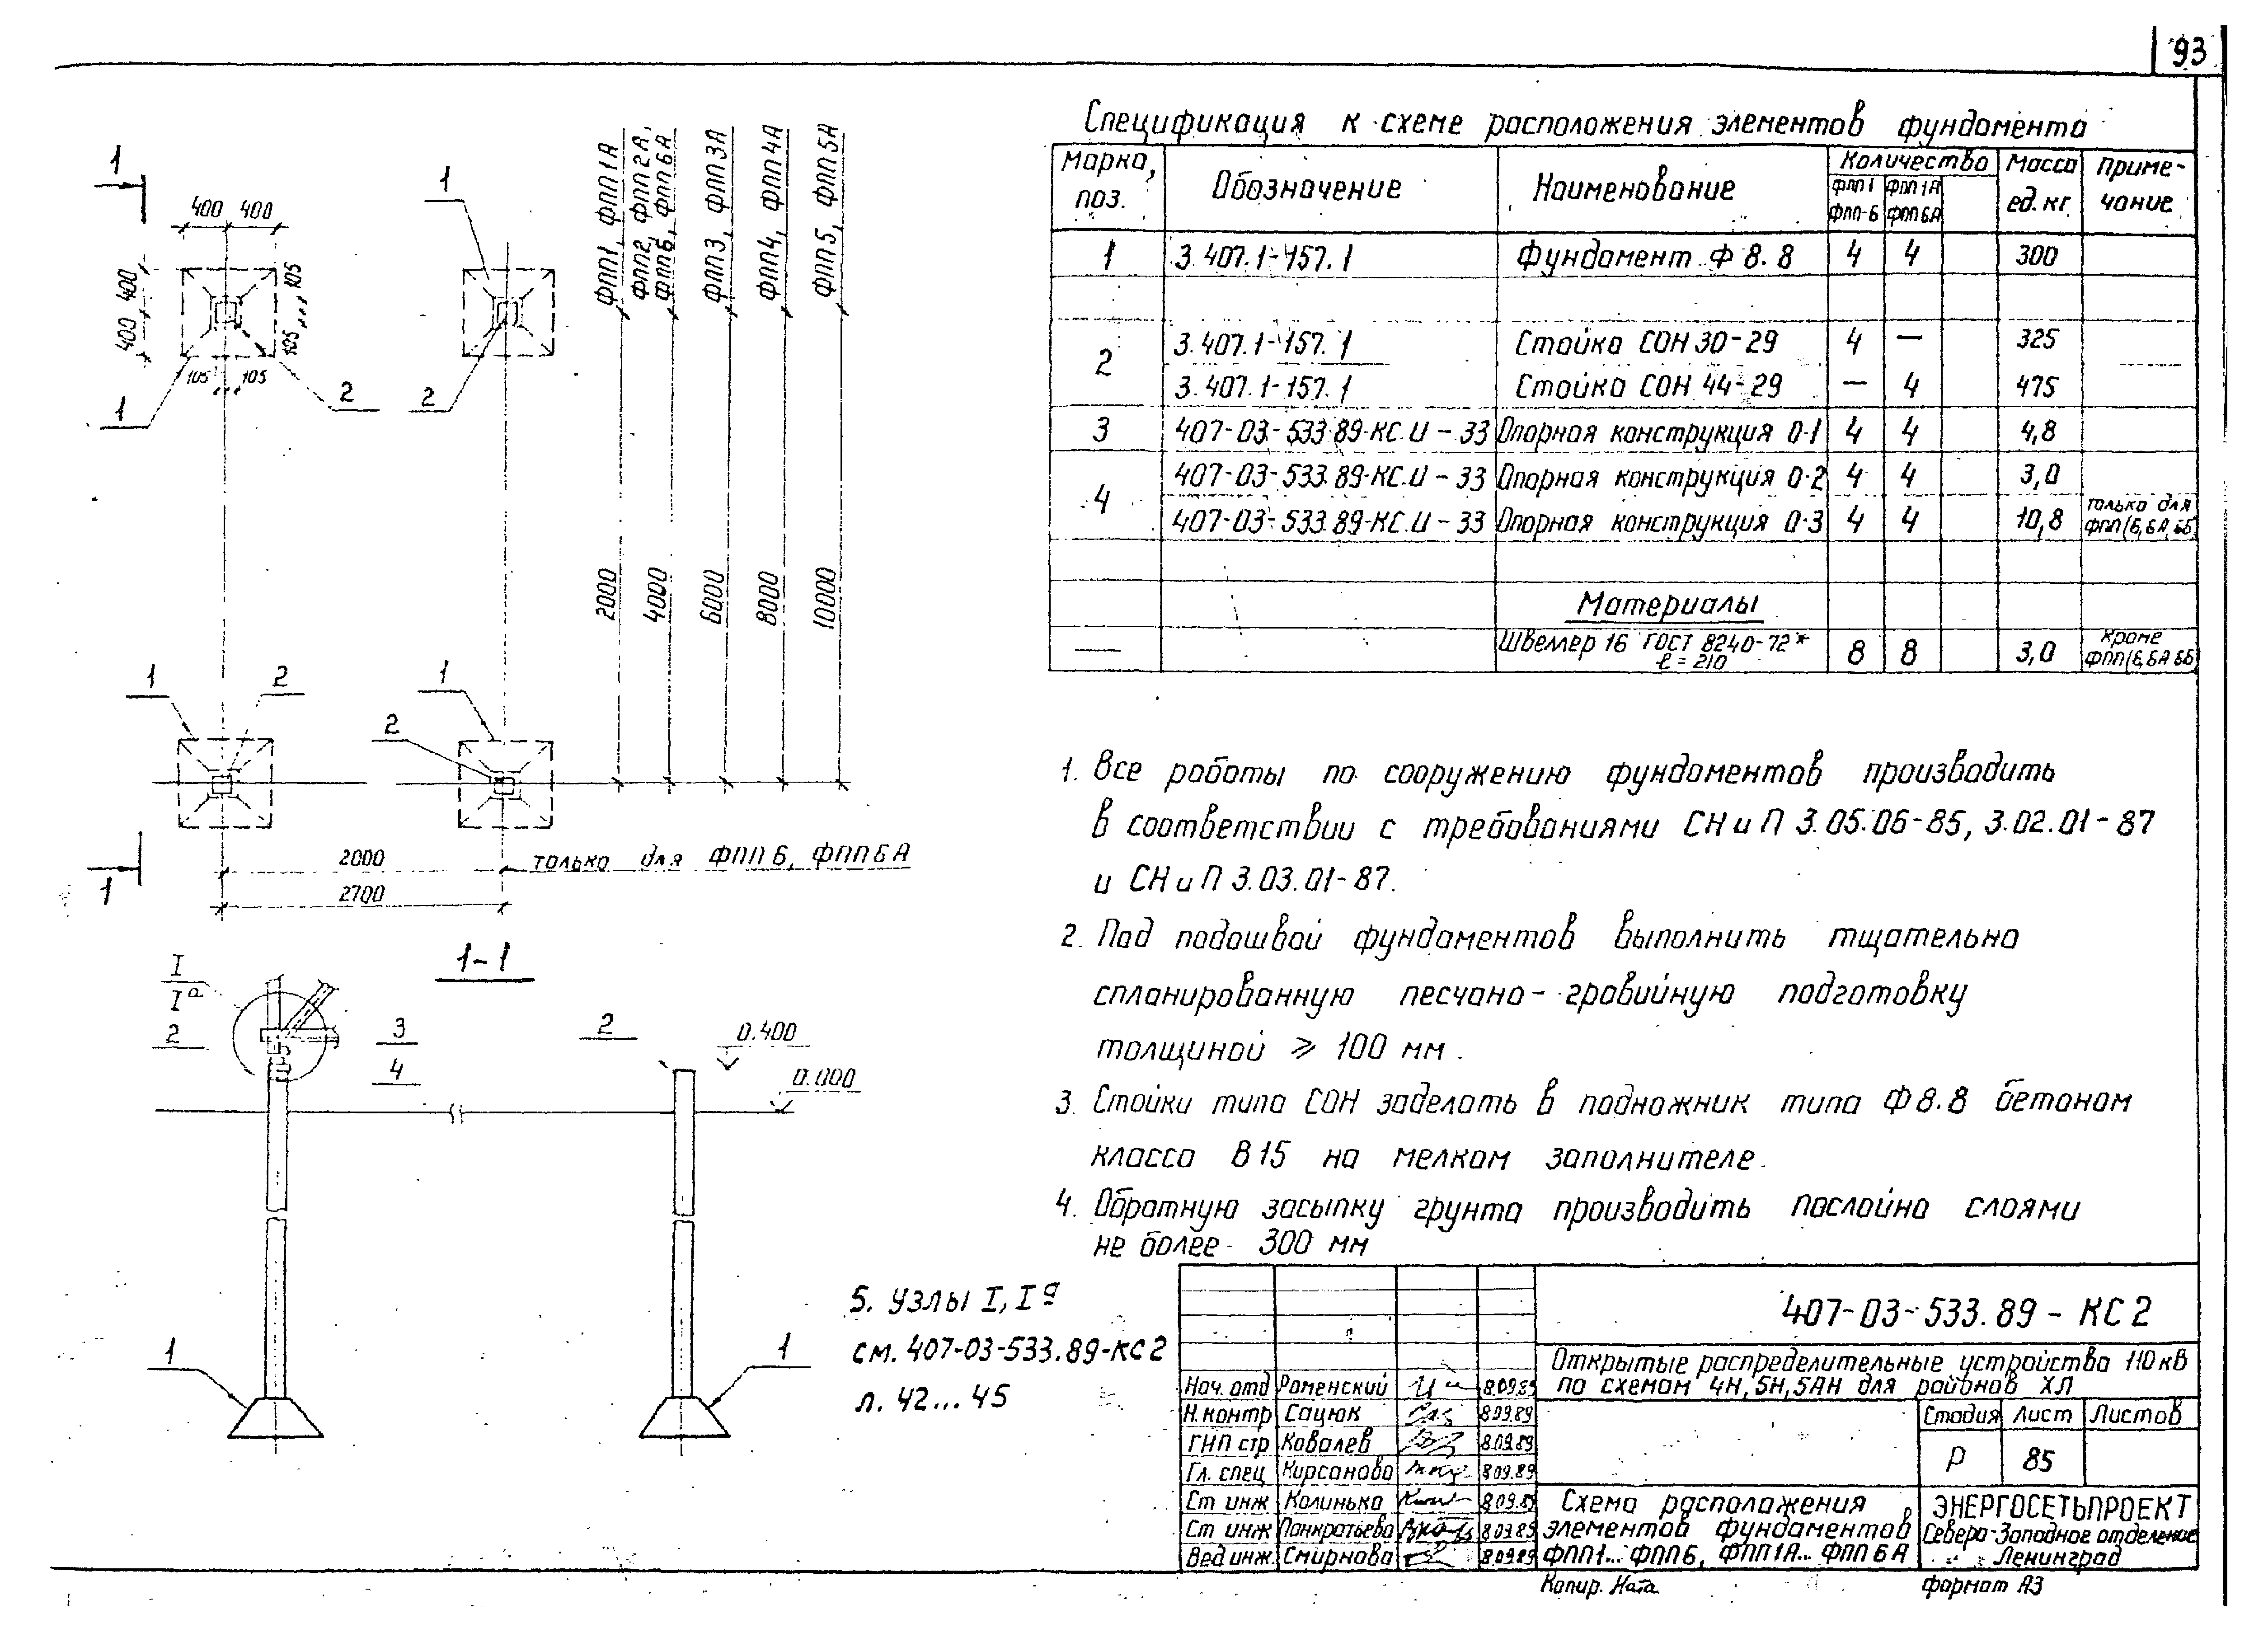 93
Спецификация к схеме расположения элементов фундамента
Марка, поз. Обозначение Наименование Количество Масса ед. кг Приме-чание
ФПП1 ФПП-6 ФПП1А ФПП6А
1 3.407.1-157.1 Фундамент Ф8.8 4 4 300
2 3.407.1-157.1 Стойка СОН 30-29 4 — 325
3.407.1-157.1 Стойка СОН 44-29 — 4 475
3 407-03-533.89-КС.И-33 Опорная конструкция О-1 4 4 4,8
4 407-03-533.89-КС.И-33 Опорная конструкция О-2 4 4 3,0
407-03-533.89-КС.И-33 Опорная конструкция О-3 4 4 10,8 только для
Материалы
— Швеллер 16 ГОСТ 8240-72* 8 8 3,0 кроме
ℓ=210
1 1
400 400
400 400
105 105
105 105
1 2
1 2
ФПП1, ФПП1А
ФПП2, ФПП2А,
ФПП6, ФПП6А
ФПП3, ФПП3А
ФПП4, ФПП4А
ФПП5, ФПП5А
2000
4000
6000
8000
10000
1 2
1 2
1
2000 только для ФПП6, ФПП6А
2700
1-1
I
Iа
2 3
4
2 0.400
0.000
1 1
1. Все работы по сооружению фундаментов производить
в соответствии с требованиями СНиП 3.05.06-85, 3.02.01-87
и СНиП 3.03.01-87.
2. Под подошвой фундаментов выполнить тщательно
спланированную песчано-гравийную подготовку
толщиной ⩾ 100 мм.
3. Стойки типа СОН заделать в подножник типа Ф8.8 бетоном
класса В15 на мелком заполнителе.
4. Обратную засыпку грунта производить послойно слоями
не более 300 мм
5. Узлы I, Iа
см. 407-03-533.89-КС2
л. 42...45
407-03-533.89-КС2
Открытые распределительные устройства 110 кВ
по схемам 4Н, 5Н, 5АН для районов ХЛ
Нач. отд Роменский 8.09.89
Н.контр Сацюк 8.09.89
ГИП стр Ковалев 8.09.89
Гл. спец Кирсанова 8.09.89
Ст инж Калинько 8.09.89
Ст инж Панкратьева 8.09.89
Вед инж. Смирнова 8.09.89
Стадия Лист Листов
Р 85
Схема расположения
элементов фундаментов
ФПП1...ФПП6, ФПП1А...ФПП6А
ЭНЕРГОСЕТЬПРОЕКТ
Северо-Западное отделение
Ленинград
Копир. Ната
формат А3